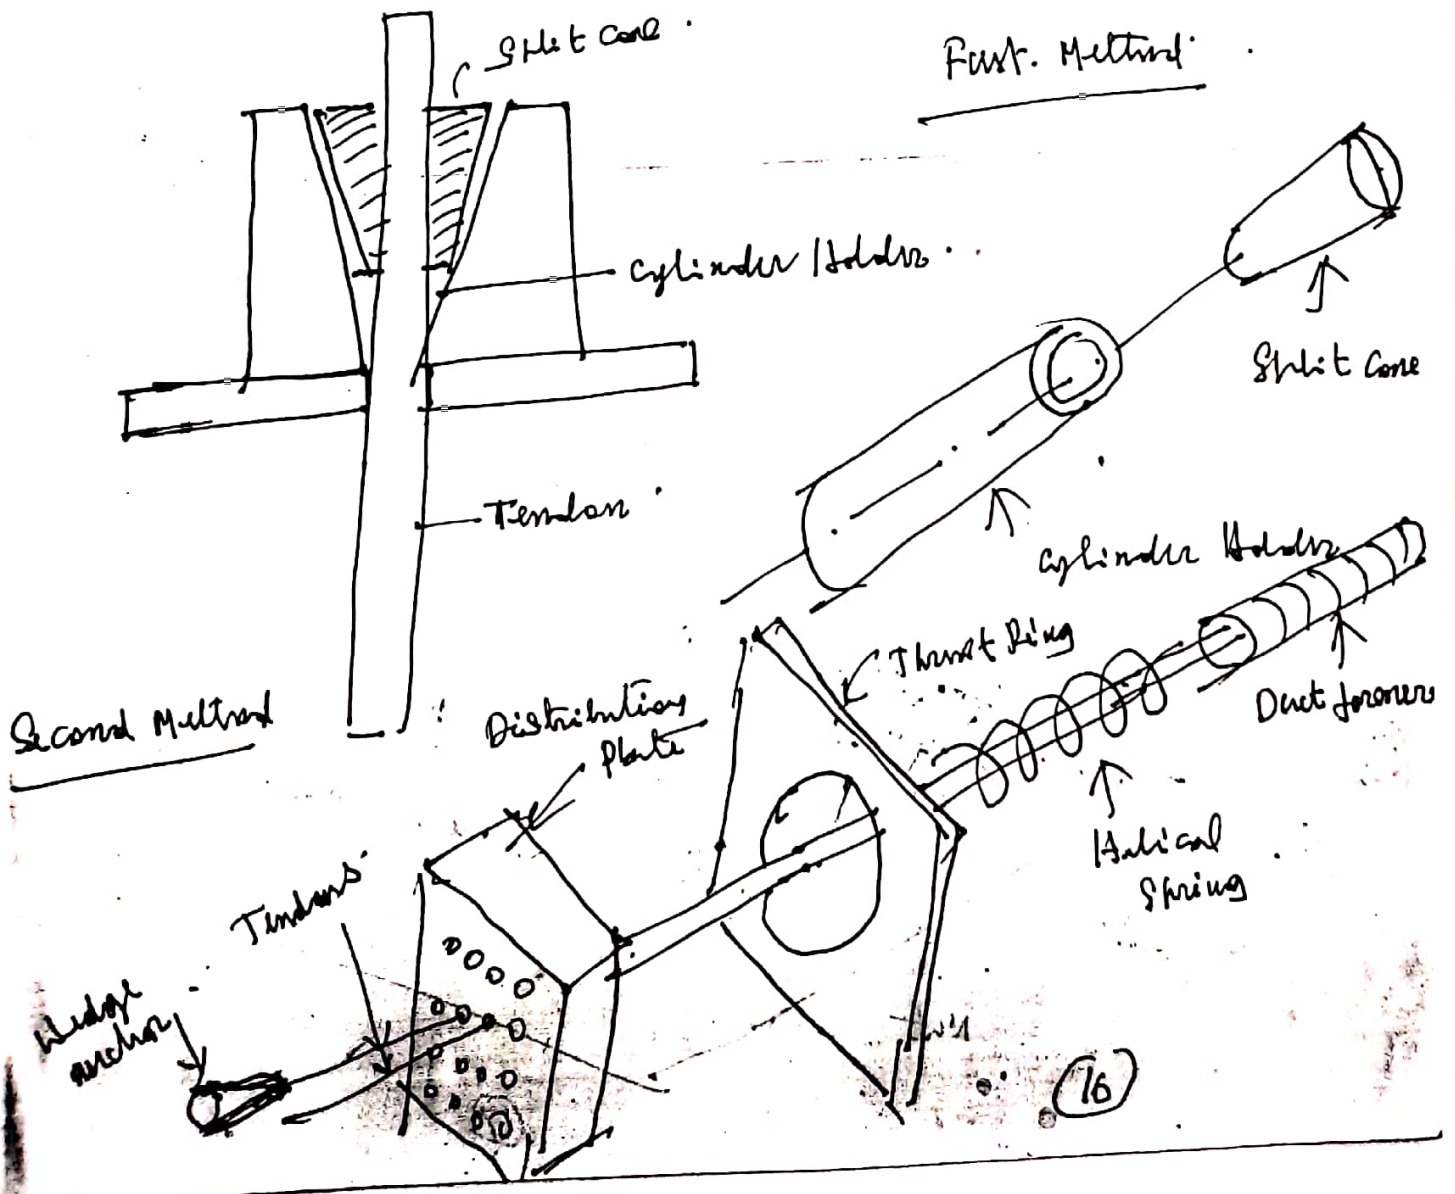 Split Cone.
First. Method.
Cylinder Holder.
Split Cone
Tendon.
Cylinder Holder
Thrust Ring
Duct formers
Second Method
Distribution
Plate
Helical
Spring
Tendons
Wedge
anchor
16